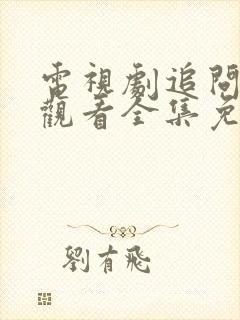 電視劇追問
觀看全集免
劉有飛